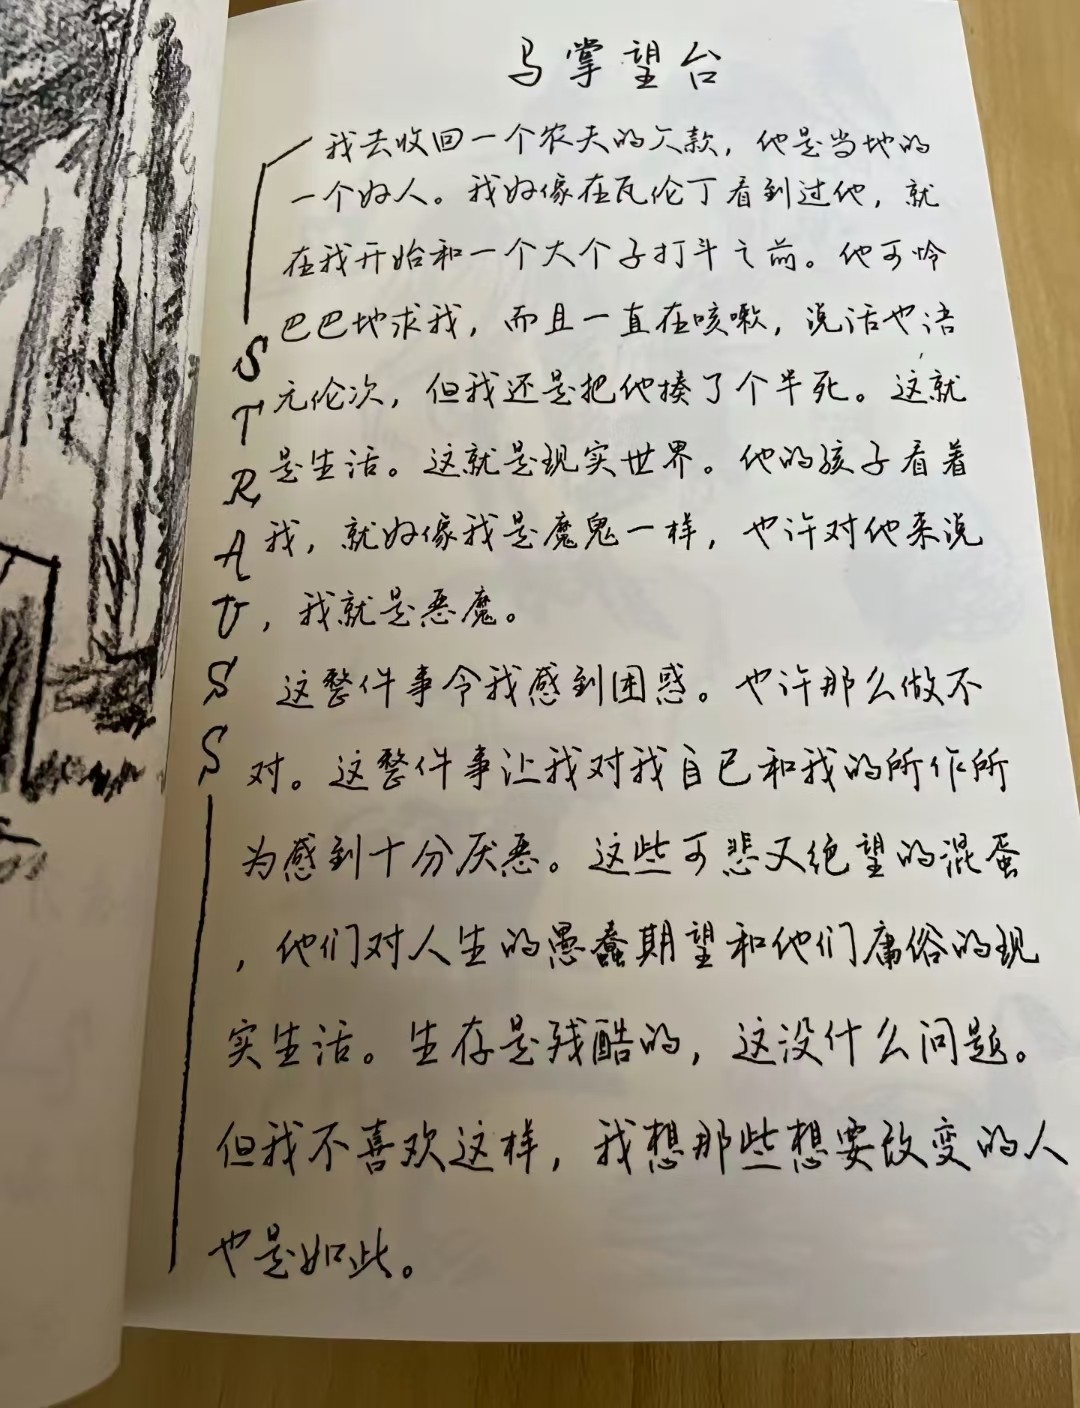 马掌望台
我去收回一个农夫的欠款，他是当地的
一个好人。我好像在瓦伦丁看到过他，就
在我开始和一个大个子打斗之前。他可怜
巴巴地求我，而且一直在咳嗽，说话也语
无伦次，但我还是把他揍了个半死。这就
是生活。这就是现实世界。他的孩子看着
我，就好像我是魔鬼一样，也许对他来说
，我就是恶魔。
这整件事令我感到困惑。也许那么做不
对。这整件事让我对我自己和我的所作所
为感到十分厌恶。这些可悲又绝望的混蛋
，他们对人生的愚蠢期望和他们庸俗的现
实生活。生存是残酷的，这没什么问题。
但我不喜欢这样，我想那些想要改变的人
也是如此。
STRAUSS